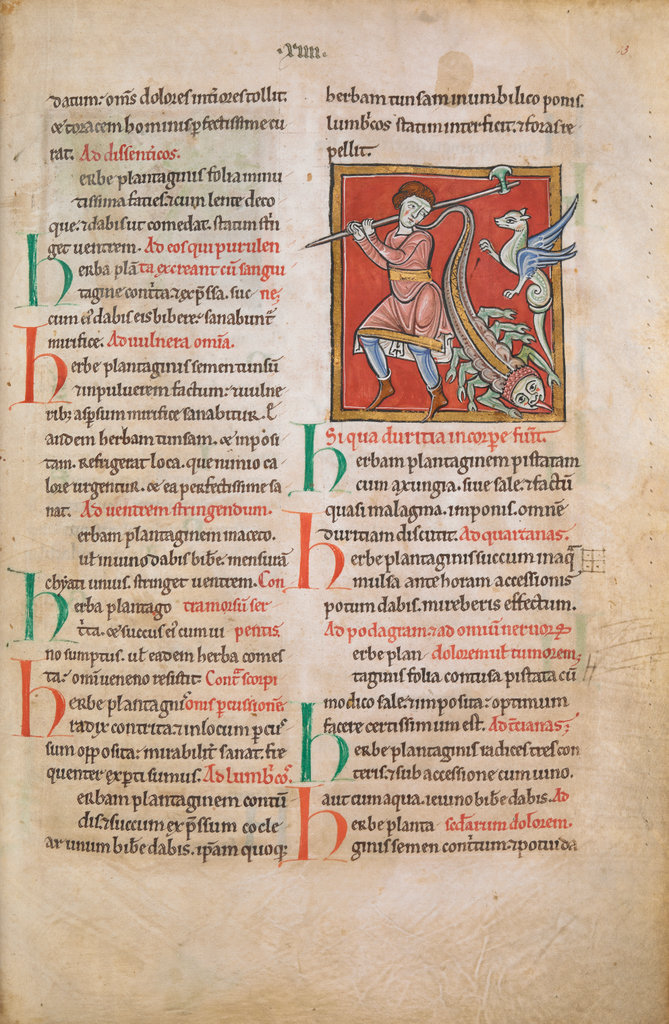 ·xıııı·
13
datum: om̄s dolores int̄iores tollit.
& toracem hominis p̄fectissime cu
rat. Ad dissentericos.
erbe plantaginis folia minu
tissima facies. & cum lente deco
que. & dabis ut comedat. statim st̄n
get uentrem. Ad eos qui purulen
herba plāta excreant cū sangui
tagine cont̄ta & exp̄ssa. suc ne;
cum ei dabis eis bibere. sanabunt̄
mirifice. Ad uulnera omīa.
herbe plantaginis semen tunsū
& in puluerem factum. & uulne
rib; aspsum mirifice sanabitur. &
eisdem herbam tunsam. & imposi
tam. refrigerat loca. que nimio ca
lore urgentur. & ea perfectissime sa
nat. Ad uentrem stringendum.
erbam plantaginem in aceto.
ul̄ in uino dabis bibe. mensurā
chyati unius. stringet uentrem. Con
herba plantago tra morsū ser
t̄ta. & succus ei cum ui pentis.
no sumptus. ul̄ eadem herba comes
ta: omi ueneno resistit. Cont̄ scorpi
herbe plantaginis onis pcussionē
radix contrita. & in locum pcus
sum opposita: mirabilit̄ sanat. fre
quenter exp̄ti sumus. Ad lumb̄cos.
erbam plantaginem contū
dis. & succum exp̄ssum cocle
ar unum bibe dabis. ip̄am quoq;
herbam tunsam in umbilico ponis.
lumb̄cos statim interficit. & foras re
pellit.
Si qua duritia in corpe fuīt.
herbam plantaginem pistatam
cum axungia. siue sale. & factū
quasi malagma. imponis. omnē
duritiam discutit. Ad quartanas.
herbe plantaginis succum in aq̄
mulsa ante horam accessionis
potum dabis. mireberis effectum.
Ad podagram. & ad omniū neruorꝝ
erbe plan dolorem ul̄ tumorem;
taginis folia contusa pistata cū
modico sale. & imposita: optimum
facere certissimum est. Ad t̄cianas;
herbe plantaginis radices tres con
teris. & sub accessione cum uino.
aut cum aqua. ieiuno bibe dabis. Ad
herbe planta sec̄darum dolorem.
ginis semen cont̄tum. & potui da